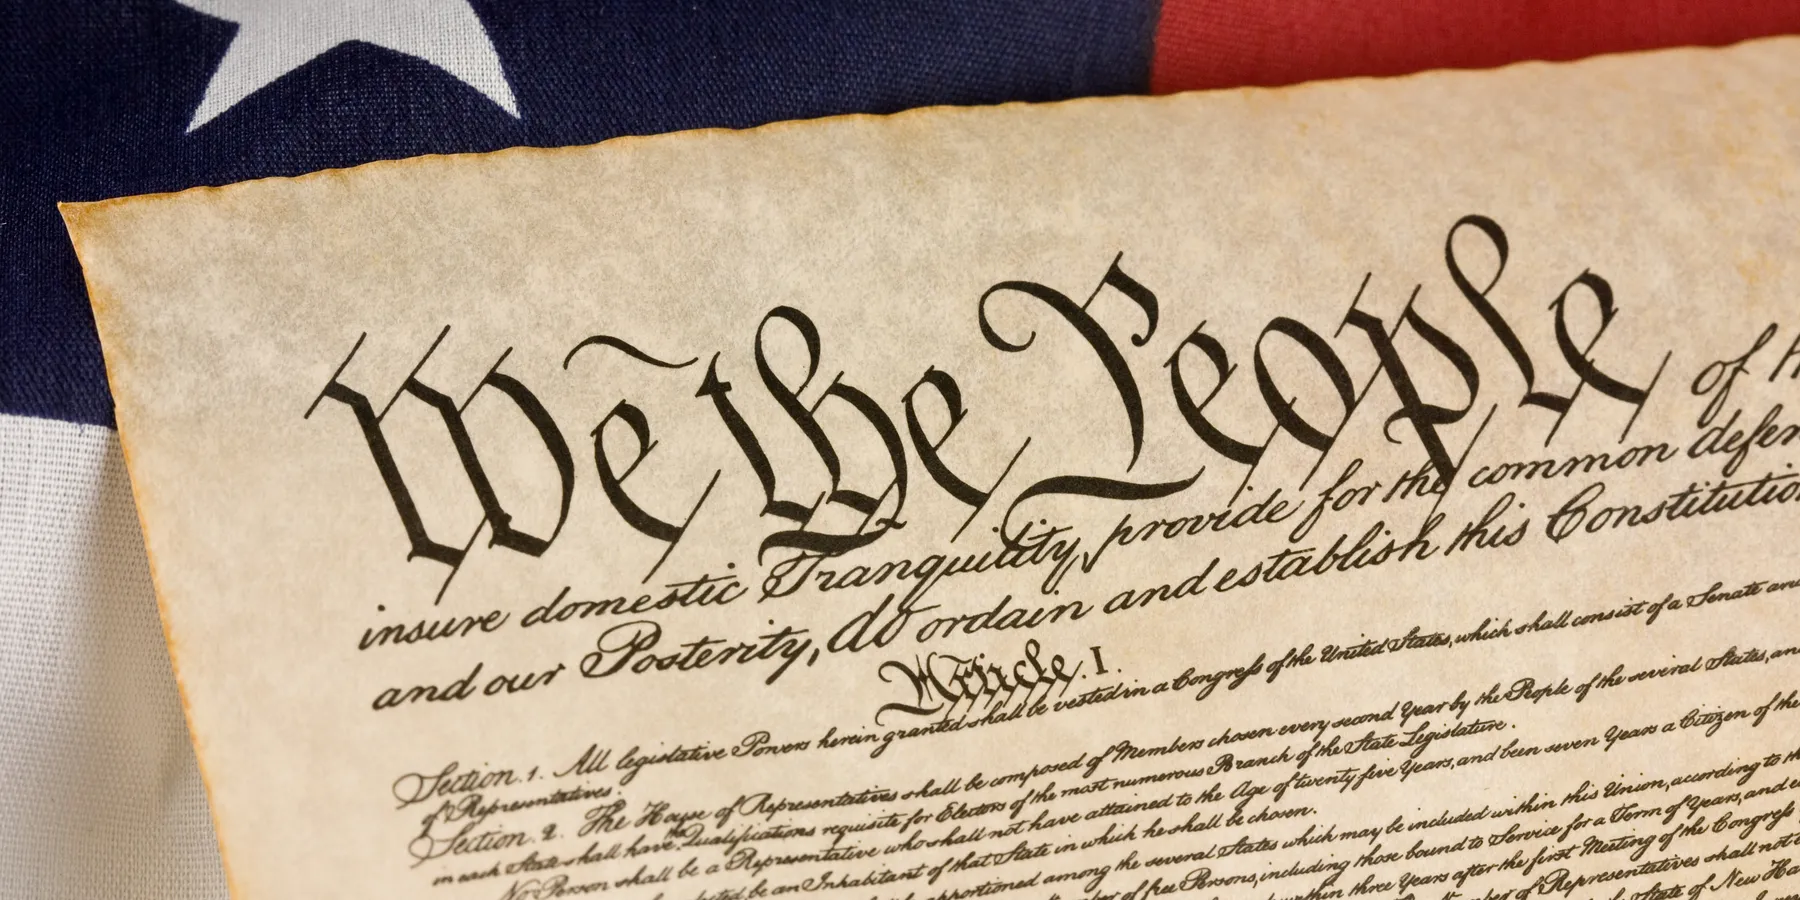 We the People of
insure domestic Tranquility, provide for the common defen
and our Posterity, do ordain and establish this Constitutio
Article. I.
Section. 1. All legislative Powers herein granted shall be vested in a Congress of the United States, which shall consist of a Senate and
of Representatives.
Section. 2. The House of Representatives shall be composed of Members chosen every second Year by the People of the several States, and
in each State shall have the Qualifications requisite for Electors of the most numerous Branch of the State Legislature.
No Person shall be a Representative who shall not have attained to the Age of twenty five Years, and been seven Years a Citizen of the
be an Inhabitant of that State in which he shall be chosen.
apportioned among the several States which may be included within this Union, according to
of free Persons, including those bound to Service for a Term of Years, and
within three Years after the first Meeting of the Congress
of Representatives shall not
State of New